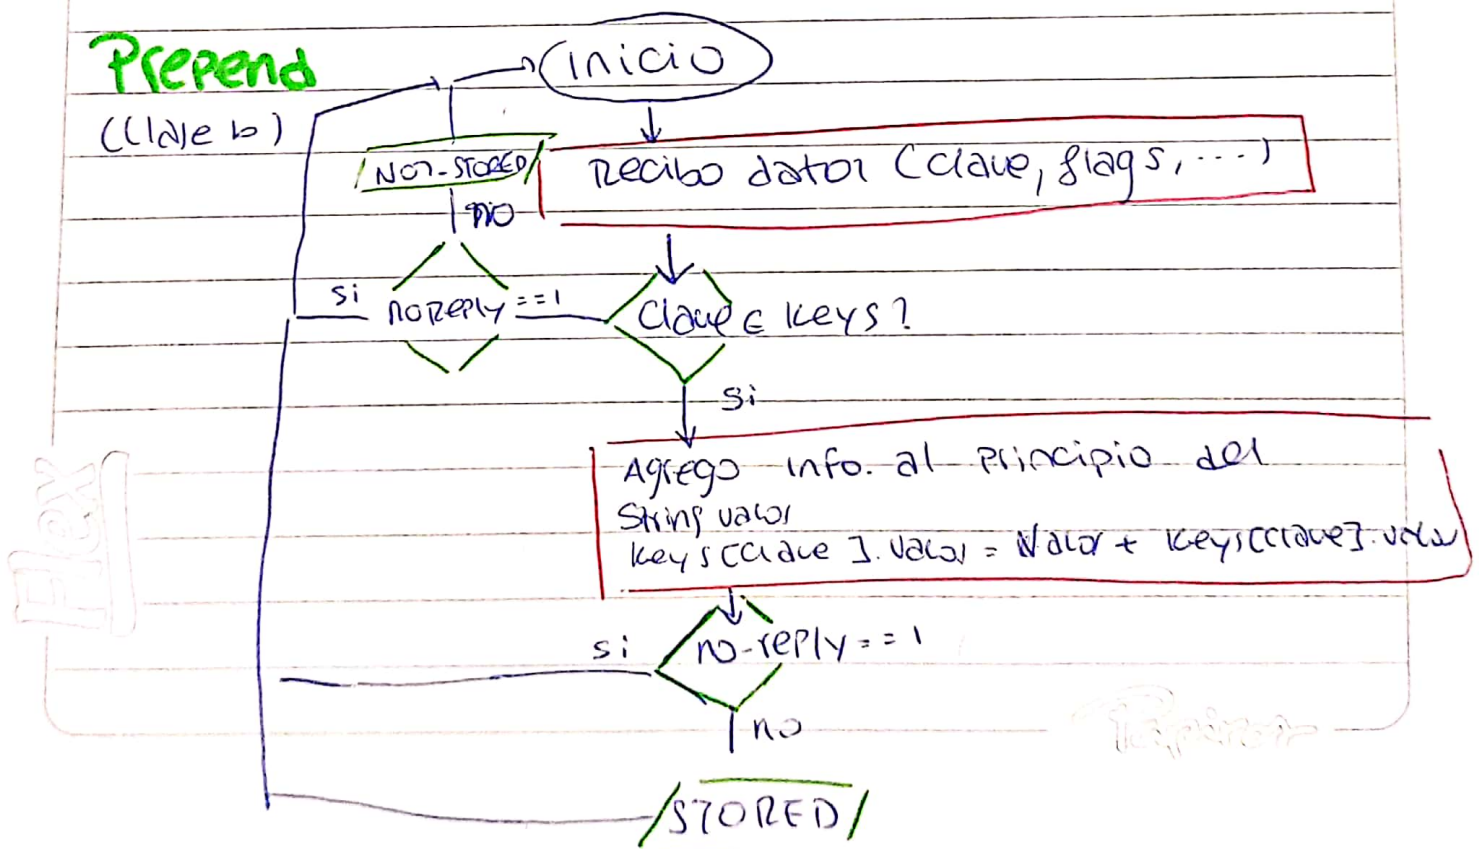 Prepend
inicio
(Clave b)
NOT-STORED
Recibo datos (clave, flags, ...)
no
si
noreply ==1
Clave ∈ keys?
si
Agrego info. al principio del
String valor
keys[clave].valor = valor + keys[clave].valor
si
no-reply == 1
no
STORED
Flex
Papiros